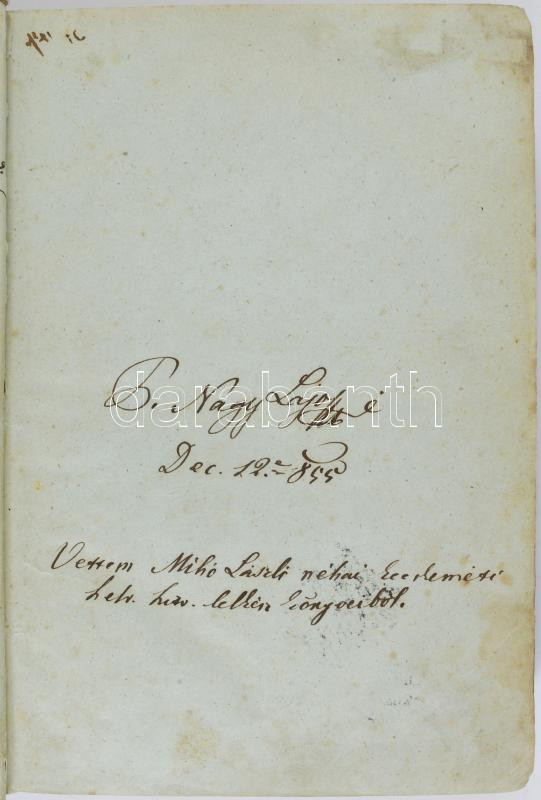 B. Nagy
Dec. 12. 855
Vettem Mihó László néhai kecskeméti
helv. hitv. lelkész könyveiből.
darabanth